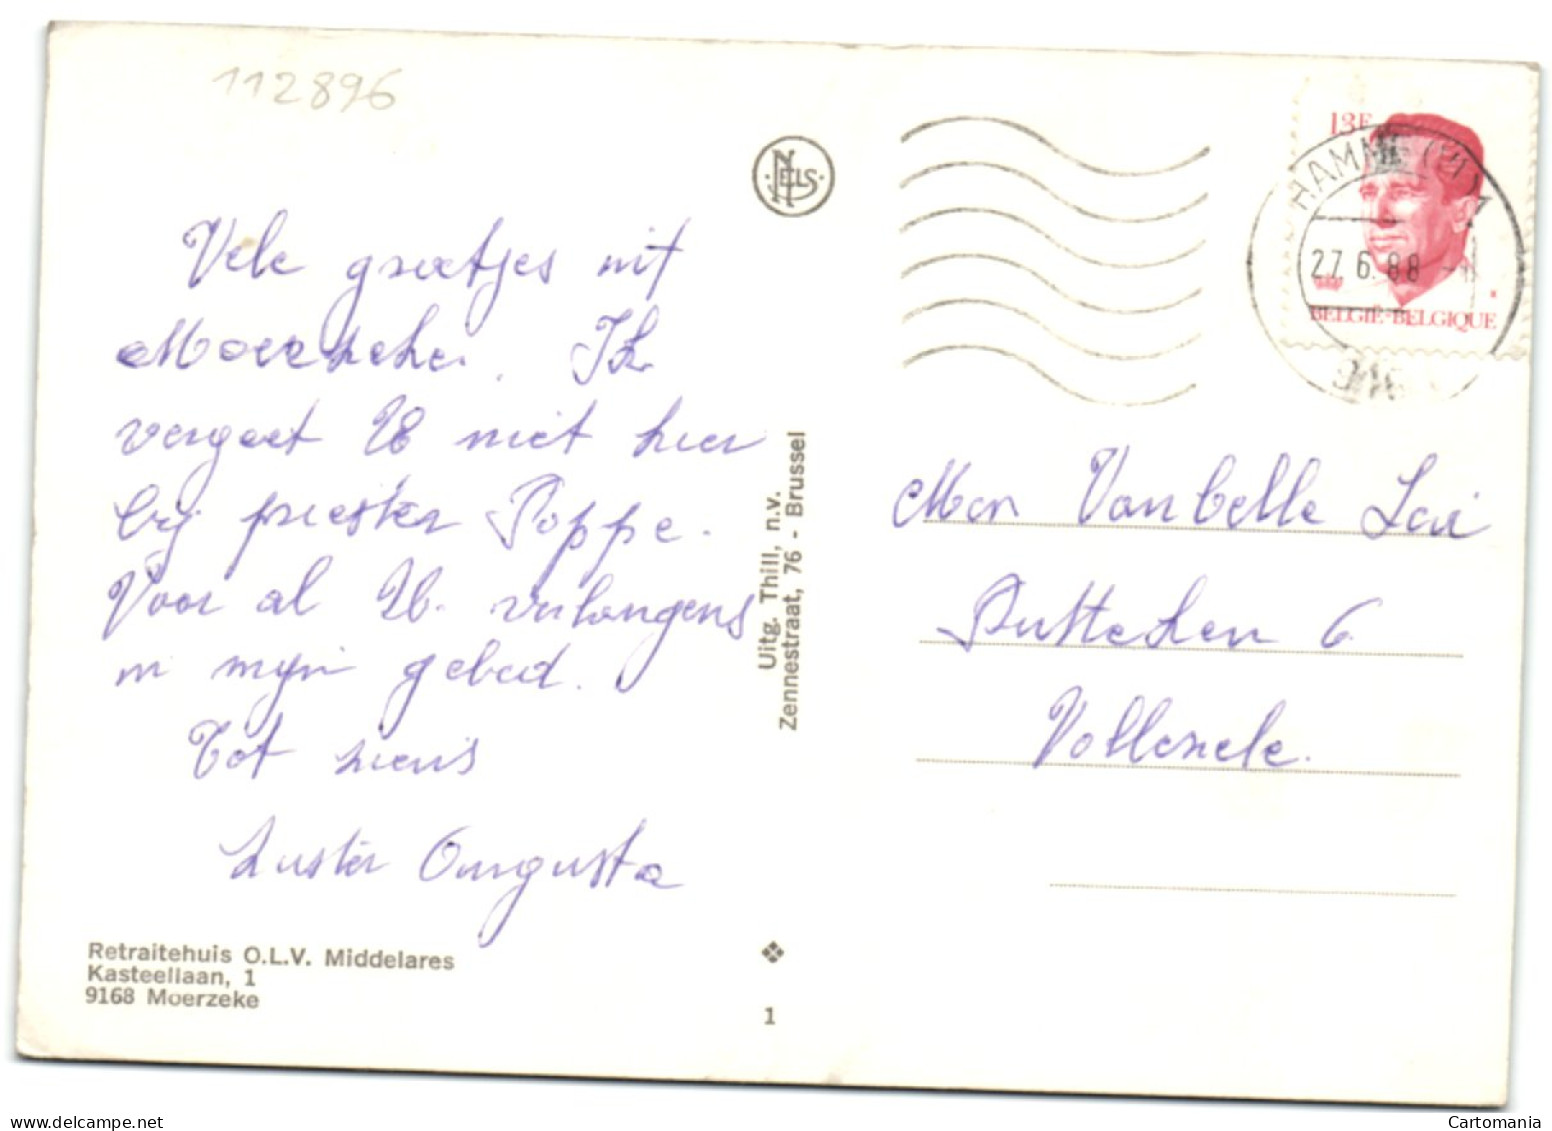 112896
NELS
Vele groetjes uit
Moerzeke. Ik
vergeet U niet hier
bij priester Poppe.
Voor al U verlangens
in mijn gebed.
Tot ziens
Zuster Augusta
Retraitehuis O.L.V. Middelares
Kasteellaan, 1
9168 Moerzeke
Uitg. Thill, n.v.
Zennestraat, 76 - Brussel
1
13F
HAMME (VL)
27.6.88
BELGIË-BELGIQUE
Van belle
Putteken 6
Vollezele.
Cartomania
https://www.delcampe.net